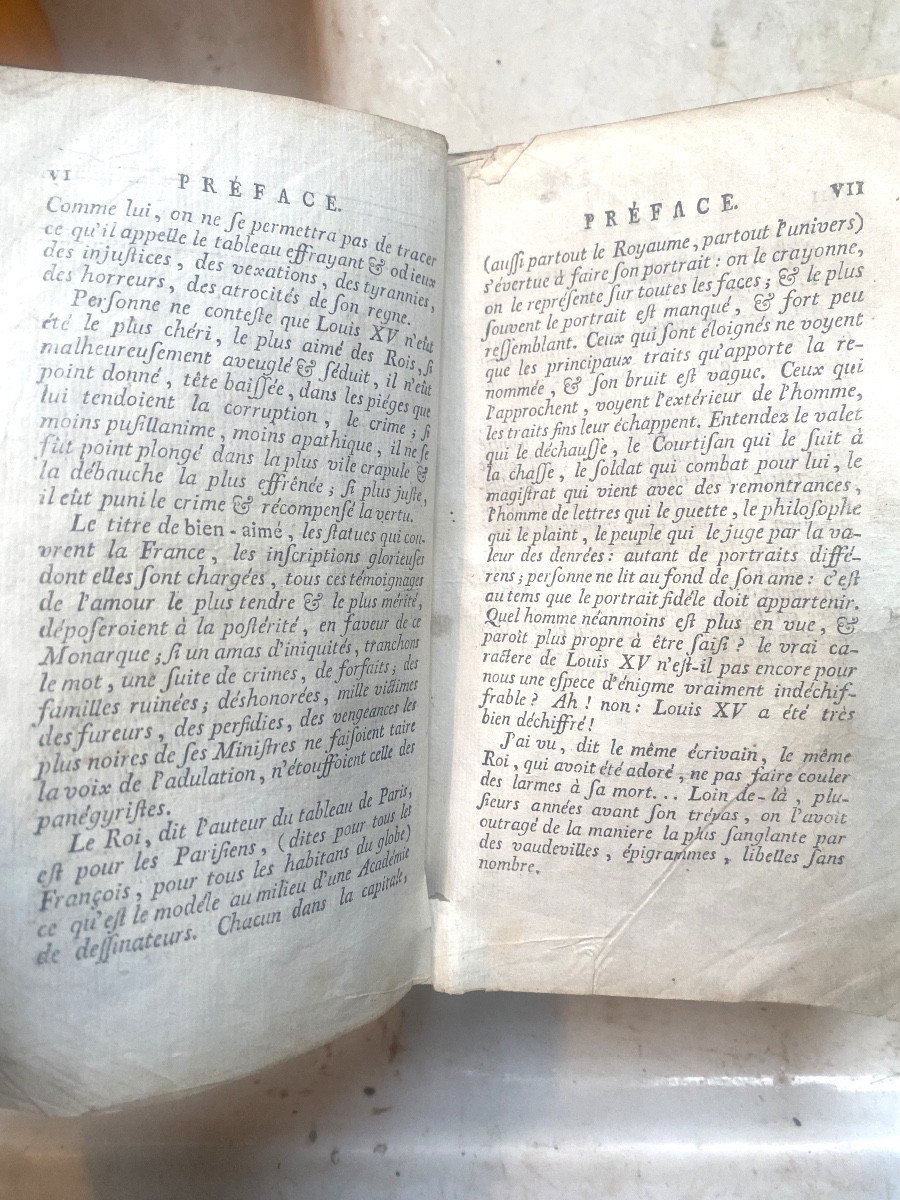 VI
PRÉFACE.
Comme lui, on ne ſe permettra pas de tracer
ce qu'il appelle le tableau effrayant & odieux
des injuſtices, des vexations, des tyrannies,
des horreurs, des atrocités de ſon regne.
Perſonne ne conteſte que Louis XV n'eût
été le plus chéri, le plus aimé des Rois, ſi
malheureuſement aveuglé & ſéduit, il n'eût
point donné, tête baiſſée, dans les piéges que
lui tendoient la corruption, le crime; ſi
moins puſillanime, moins apathique, il ne ſe
fût point plongé dans la plus vile crapule &
la débauche la plus effrênée; ſi plus juſte,
il eût puni le crime & récompenſé la vertu.
Le titre de bien-aimé, les ſtatues qui cou-
vrent la France, les inſcriptions glorieuſes
dont elles ſont chargées, tous ces témoignages
de l'amour le plus tendre & le plus mérité,
dépoſeroient à la poſtérité, en faveur de ce
Monarque; ſi un amas d'iniquités, tranchons
le mot, une ſuite de crimes, de forfaits; des
familles ruinées; déshonorées, mille victimes
des fureurs, des perfidies, des vengeances les
plus noires de ſes Miniſtres ne faiſoient taire
la voix de l'adulation, n'étouffoient celle des
panégyriſtes.
Le Roi, dit l'auteur du tableau de Paris,
eſt pour les Pariſiens, (dites pour tous les
François, pour tous les habitans du globe)
ce qu'eſt le modéle au milieu d'une Académie
de deſſinateurs. Chacun dans la capitale,
VII
PRÉFACE.
(auſſi partout le Royaume, partout l'univers)
s'évertue à faire ſon portrait: on le crayonne,
on le repréſente ſur toutes les faces; & le plus
ſouvent le portrait eſt manqué, & fort peu
reſſemblant. Ceux qui ſont éloignés ne voyent
que les principaux traits qu'apporte la re-
nommée, & ſon bruit eſt vague. Ceux qui
l'approchent, voyent l'extérieur de l'homme,
les traits fins leur échappent. Entendez le valet
qui le déchauſſe, le Courtiſan qui le ſuit à
la chaſſe, le ſoldat qui combat pour lui, le
magiſtrat qui vient avec des remontrances,
l'homme de lettres qui le guette, le philoſophe
qui le plaint, le peuple qui le juge par la va-
leur des denrées: autant de portraits diffé-
rens; perſonne ne lit au fond de ſon ame: c'eſt
au tems que le portrait fidéle doit appartenir.
Quel homme néanmoins eſt plus en vue, &
paroît plus propre à être ſaiſi? le vrai ca-
ractere de Louis XV n'eſt-il pas encore pour
nous une eſpece d'énigme vraiment indéchif-
frable? Ah! non: Louis XV a été très
bien déchiffré!
J'ai vu, dit le même écrivain, le même
Roi, qui avoit été adoré, ne pas faire couler
des larmes à ſa mort... Loin de-là, plu-
ſieurs années avant ſon trépas, on l'avoit
outragé de la maniere la plus ſanglante par
des vaudevilles, épigrammes, libelles ſans
nombre.